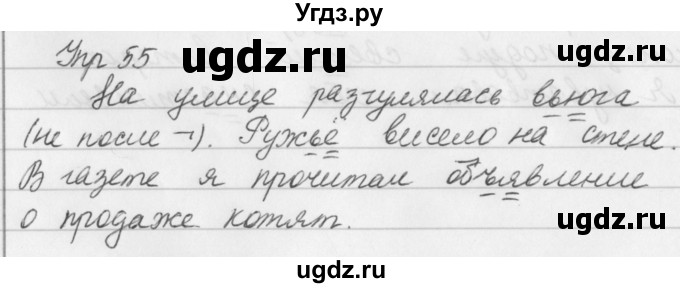 Угдз.ру
Упр 55 ugdz.ru ugdz.ru
На улице разгулялась вьюга
(не после ¬). Ружьё висело на стене.
В газете я прочитал объявление
о продаже котят. ugdz.ru
ugdz.ru